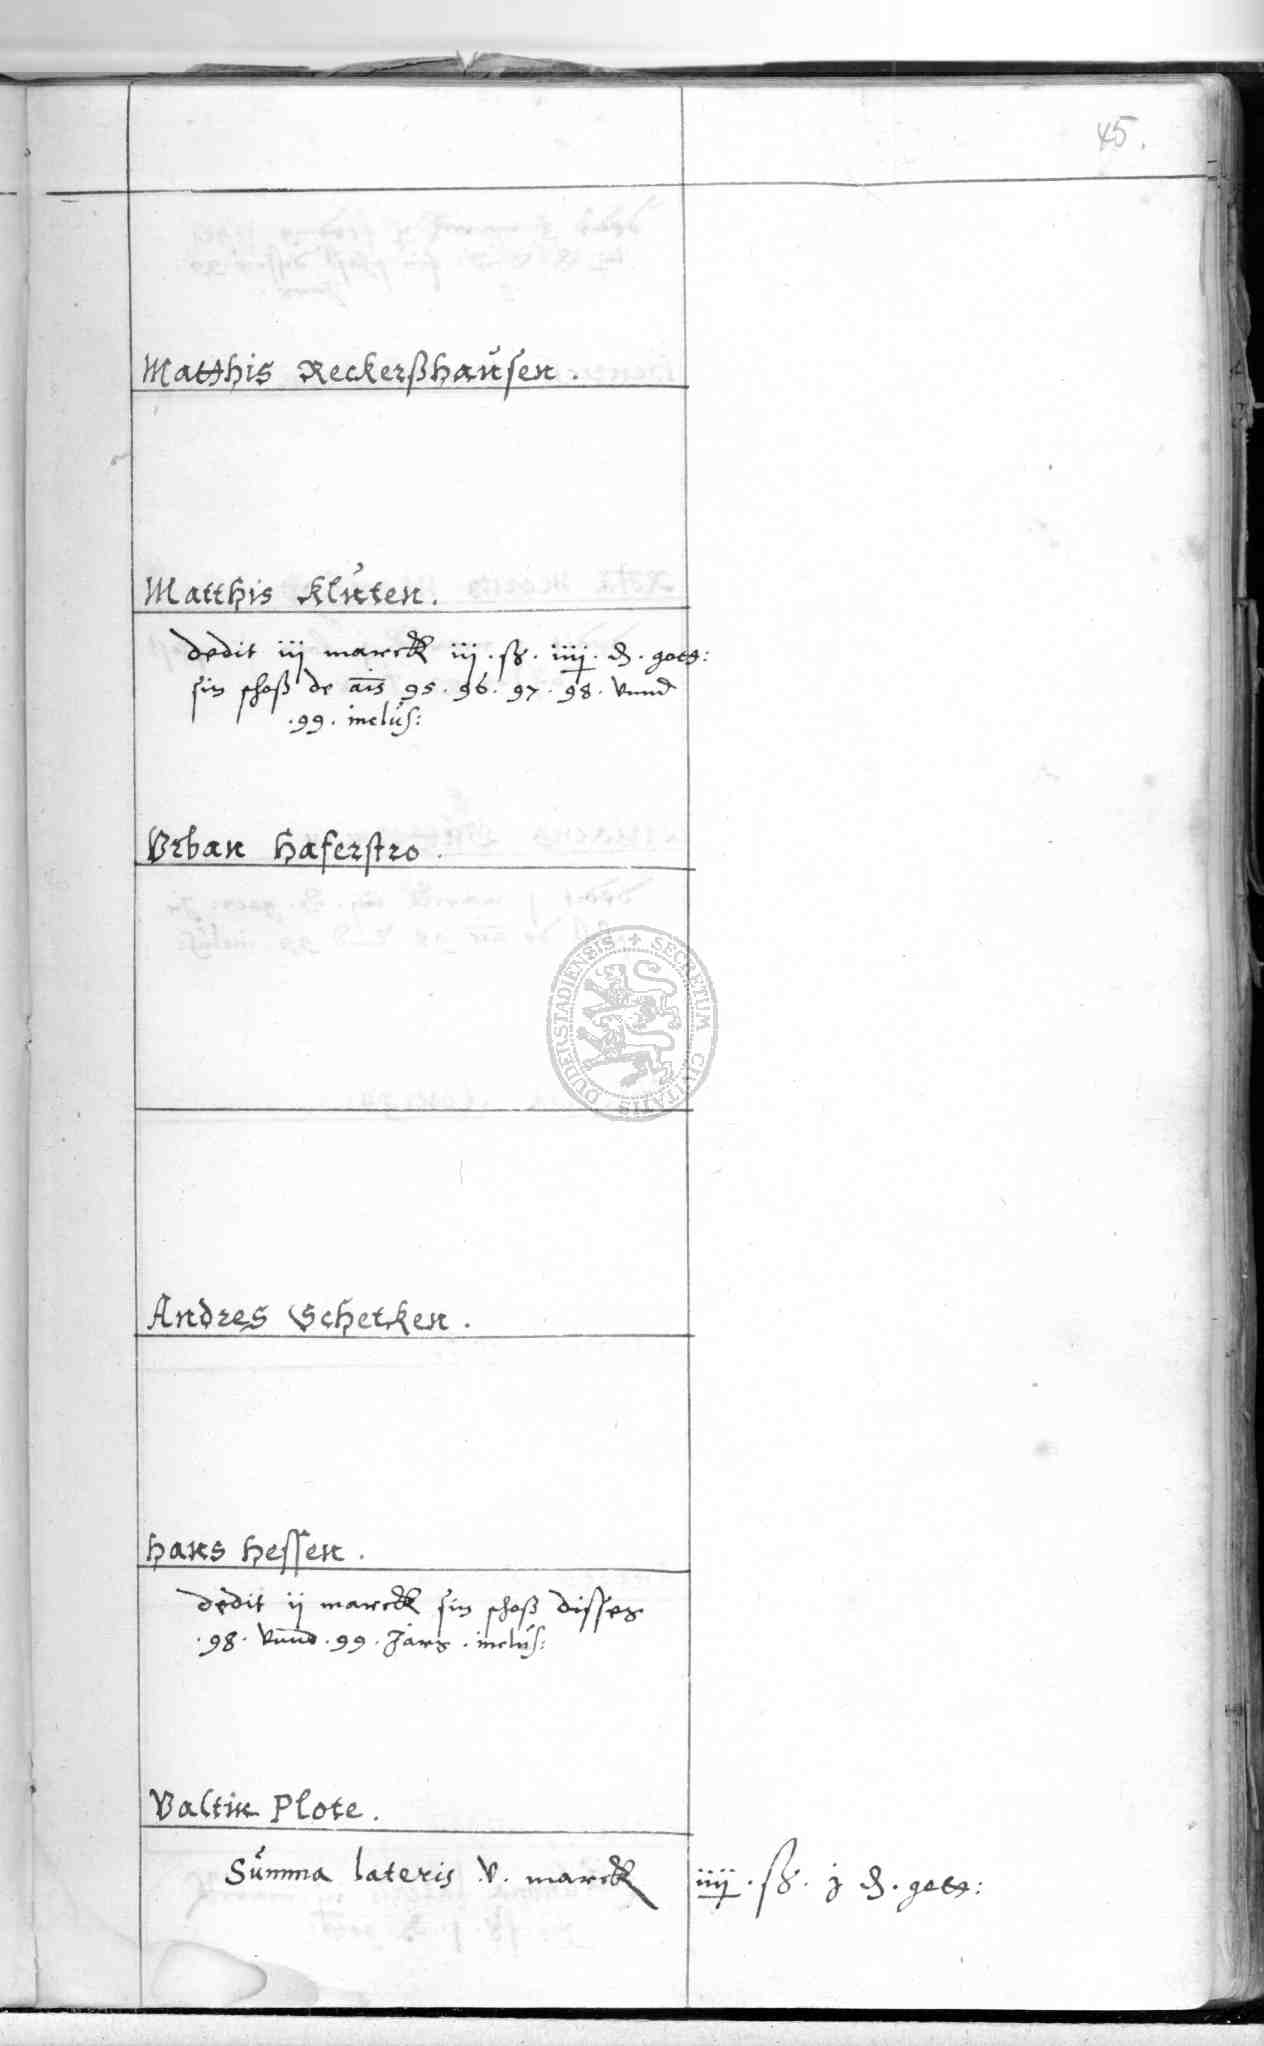 45.
Matthis Reckerßhaüsen.
Matthis Klüten.
dedit iij marck iij. ß. iiij. ₰. gots:
sin schoß de ais 95. 96. 97. 98. vnnd
.99. inclús:
Vrban Haferstro.
SECRETUM CIVITATIS DUDERSTADIENSIS
Andres Schetken.
Hans Hessen.
dedit ij marck sin schoß disses
.98. vnnd .99. Jars. inclús:
Valtin Plote.
Súmma lateris v. marck iiij. ß. j ₰. gots: